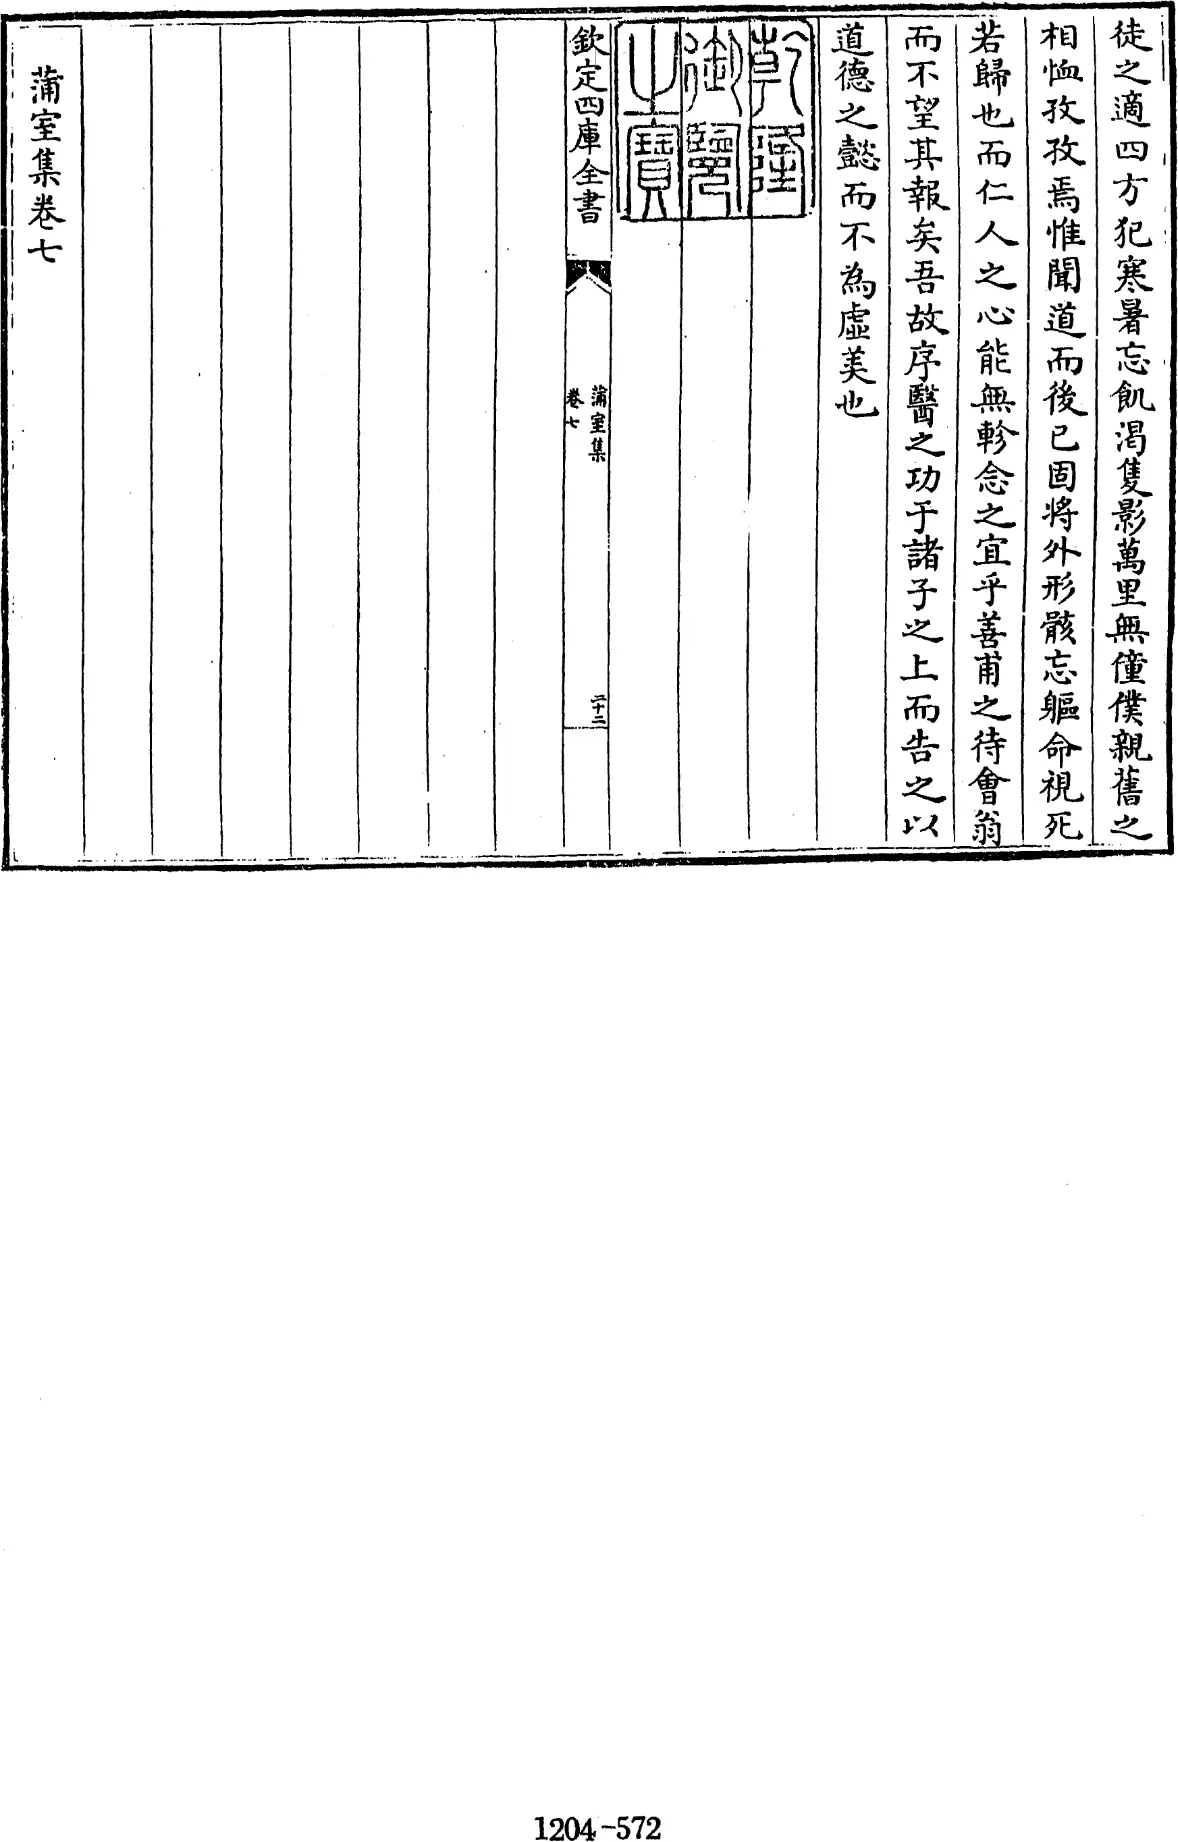 徒之適四方犯寒暑忘飢渇隻影萬里無僮僕親舊之
相恤孜孜焉惟聞道而後已固將外形骸忘軀命視死
若歸也而仁人之心能無軫念之宜乎善甫之待會翁
而不望其報矣吾故序醫之功于諸子之上而告之以
道德之懿而不為虛美也
乾隆
御覽
之寶
欽定四庫全書
蒲室集
卷七
二十二
蒲室集卷七
1204-572